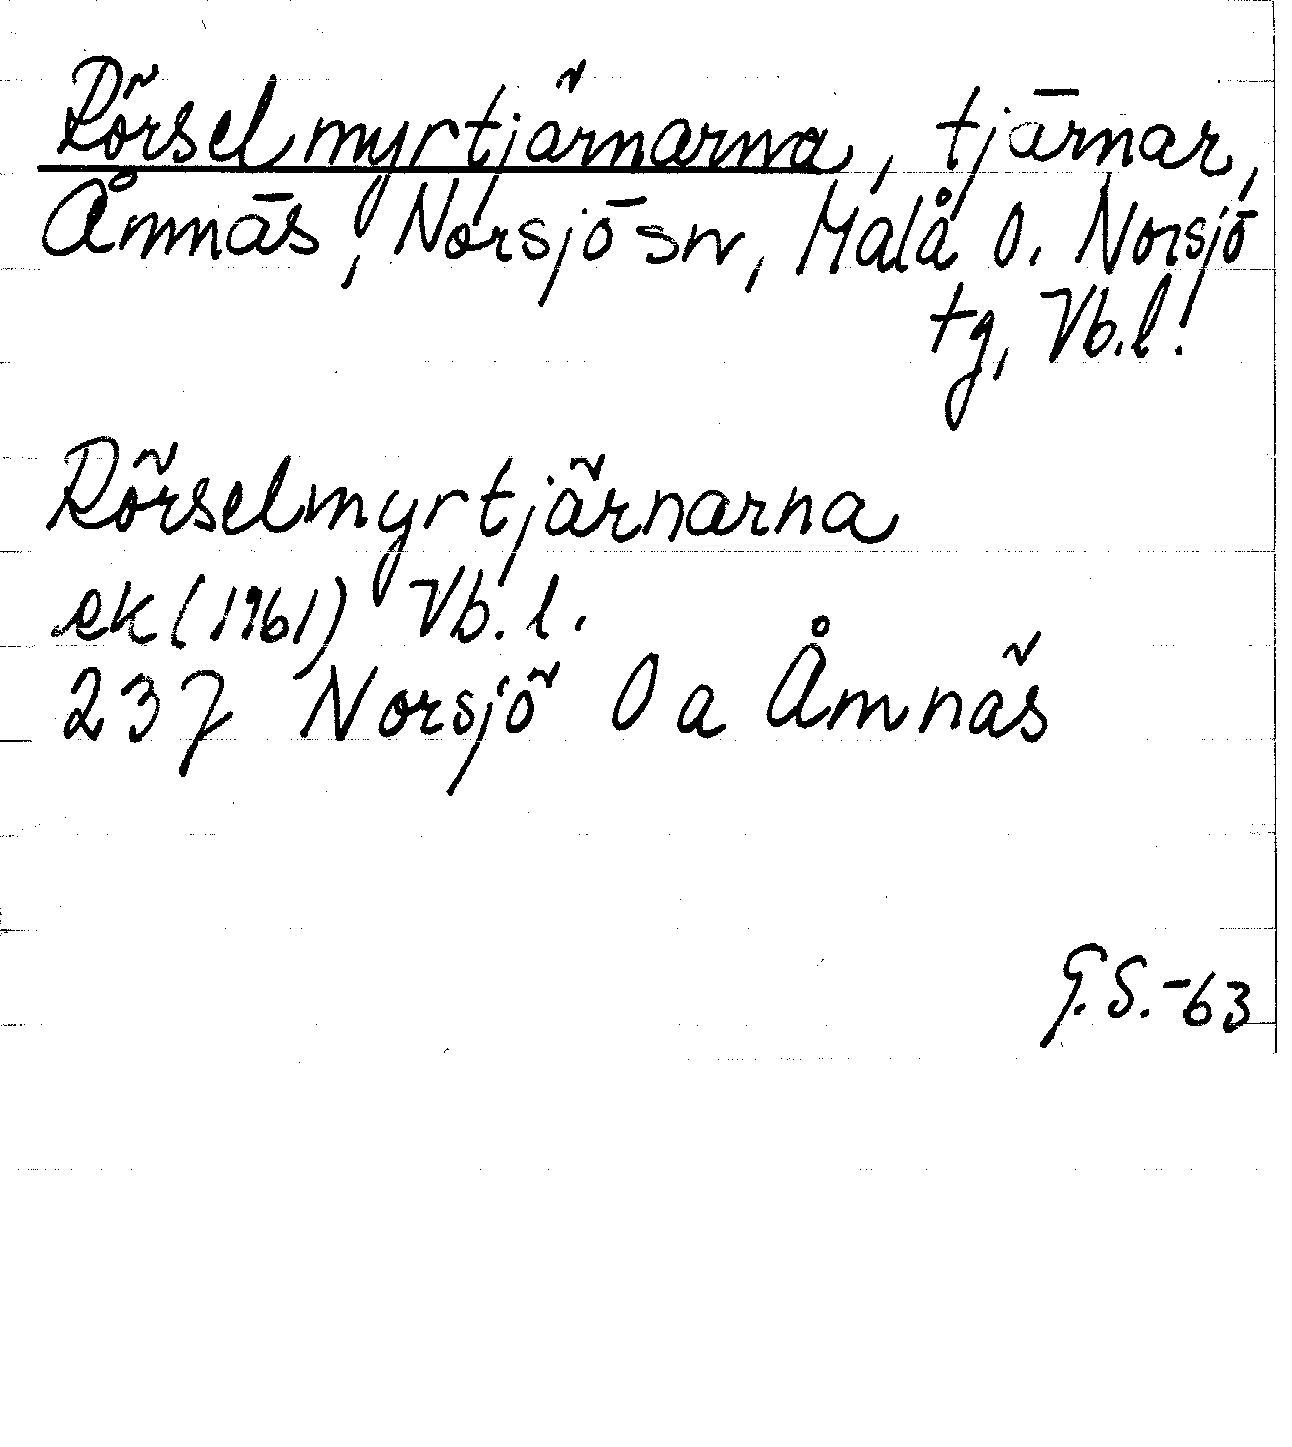 Rörselmyrtjärnarna, tjärnar,
Åmnäs, Norsjö sn, Malå o. Norsjö
tg, Vb.l.
Rörselmyrtjärnarna
ek (1961) Vb. l.
237 Norsjö 0 a Åmnäs
G.S.-63